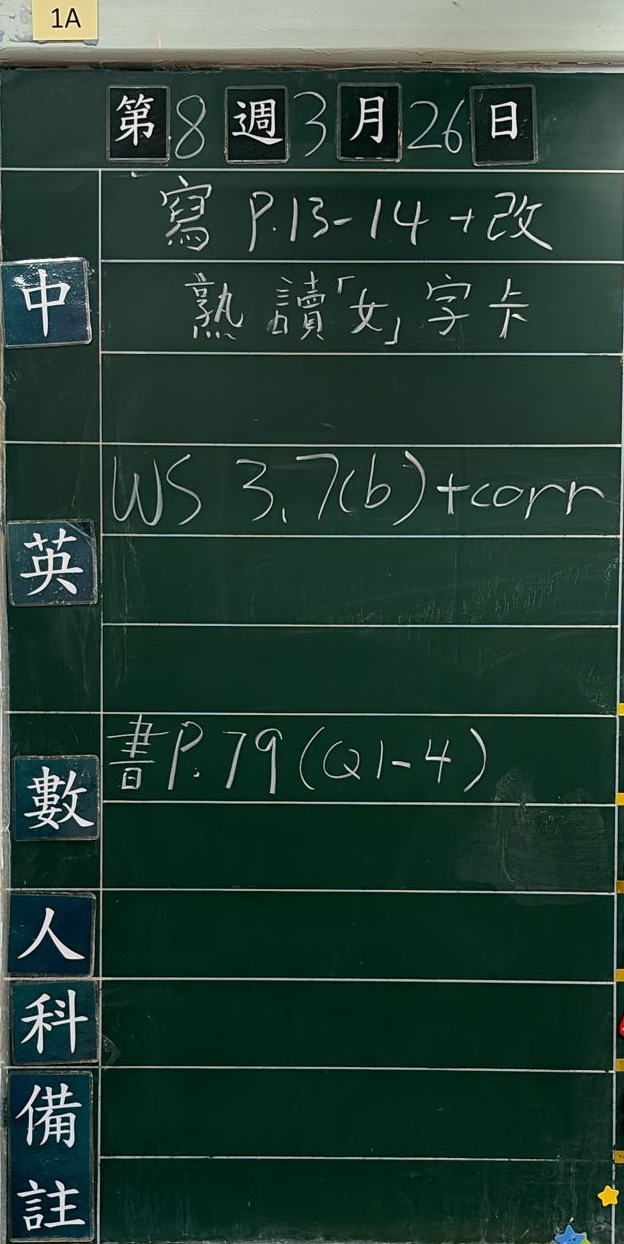 1A
第8週3月26日
寫 P.13-14 + 改
中
熟讀「女」字卡
WS 3.7(b)+corr
英
書P.79(Q1-4)
數
人
科
備
註